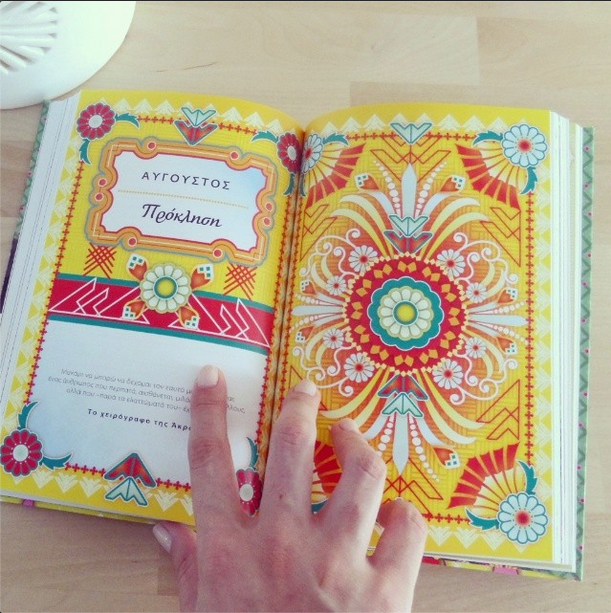 ΑΥΓΟΥΣΤΟΣ
Πρόκληση
Μακάρι να μπορώ να δέχομαι τον εαυτό μ
ένας άνθρωπος που περπατά, αισθάνεται, μιλά
αλλά που -παρά τα ελαττώματά του- έχ όλους.
Το χειρόγραφο της Άκρα